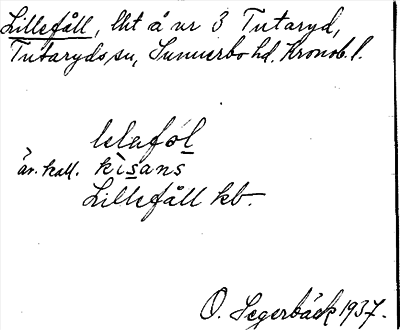 Lillefåll, lht å nr 3 Tutaryd,
Tutaryds sn, Sunnerbo hd. Kronob. l.
lɩlafo̊l
äv. kall. kìsans
Lillefåll kb.
O. Segerbäck 1937.